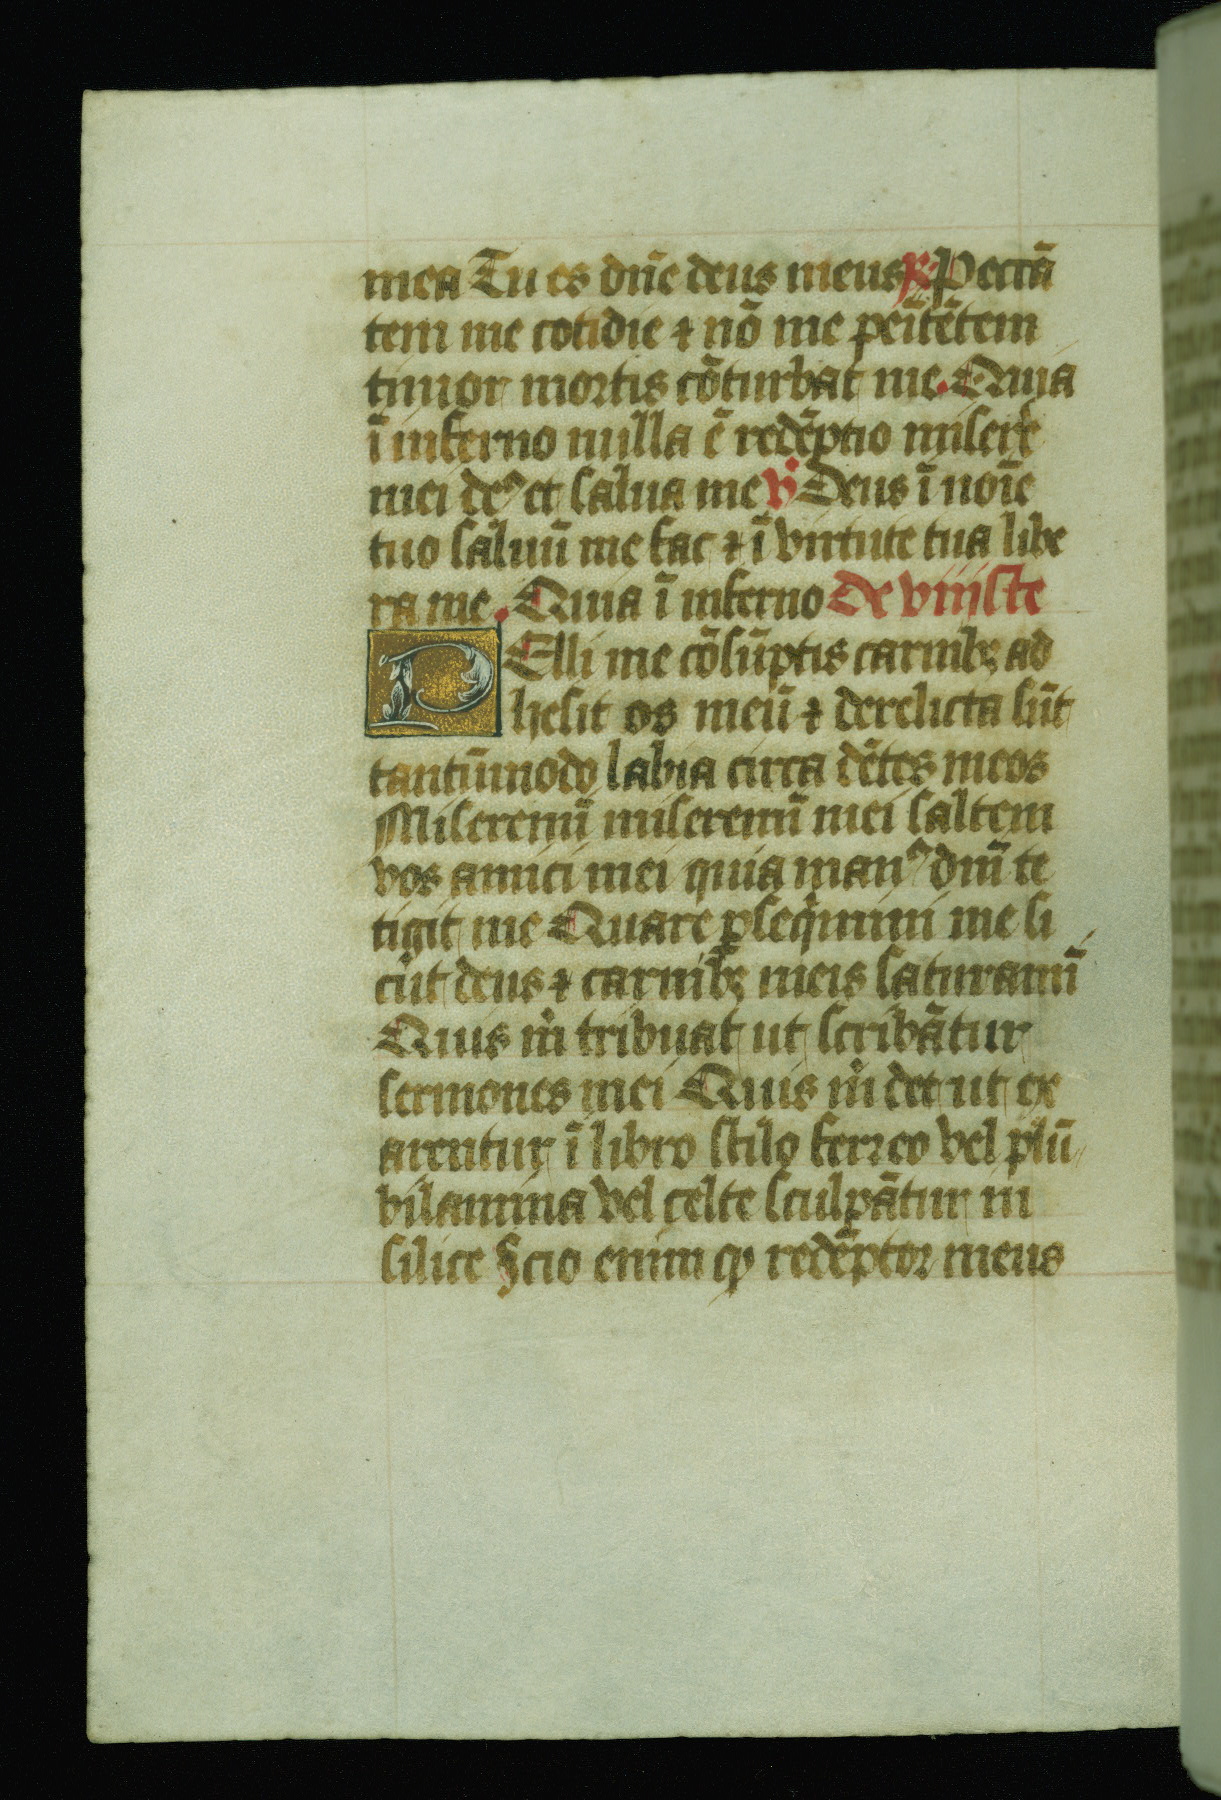 mea Tu es dn̄e deus meus ℟ Peccā
tem me cotidie ⁊ nō me pen̄itētem
timor mortis cōturbat me. Quia
ī inferno nulla ē redēptio misere
mei deꝰ et salua me ℣ Deus ī noīe
tuo saluū me fac ⁊ ī virtute tua libe
ra me. Quia ī inferno De viij lc̄e
PElli me cōsūptis carnibꝫ ad
hesit os meū ⁊ derelicta sūt
tantūmodo labia circa dētes meos
Miseremī miseremī mei saltem
vos amici mei quia manꝰ dn̄i te
tigit me Quare ꝑseqimini me si
cut deus ⁊ carnibꝫ meis saturamī
Quis m̄ tribuat ut scribātur
sermones mei Quis m̄ det ut ex
arentur ī libro stilo ferreo vel plū
bi lamina vel celte sculpātur in
silice Scio enim ꝙ redēptor meus